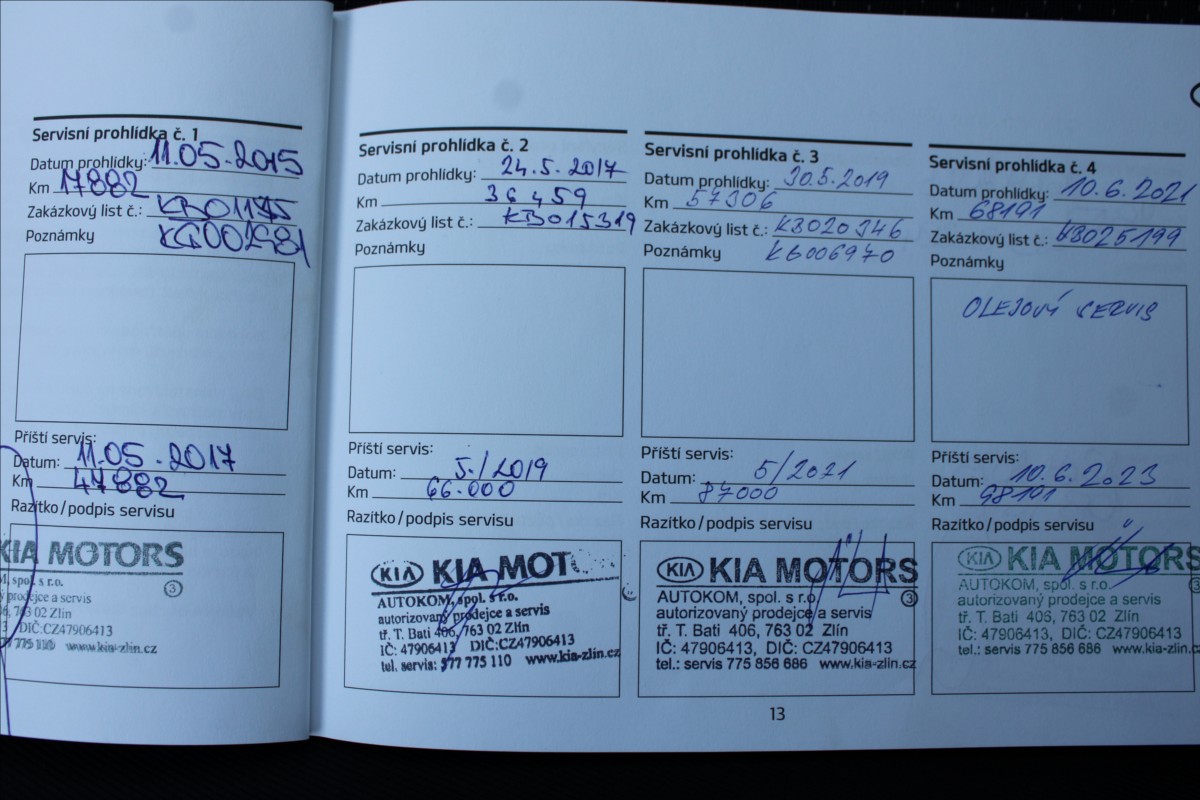 Servisní prohlídka č. 1
Datum prohlídky: 11.05.2015
Km 17882
Zakázkový list č.:
Poznámky
Příští servis:
Datum: 11.05.2017
Km 47882
Razítko/podpis servisu
KIA MOTORS
spol. s r.o.
3
prodejce a servis
763 02 Zlín
DIČ:CZ47906413
775 110 www.kia-zlin.cz
Servisní prohlídka č. 2
Datum prohlídky: 24.5.2017
Km 36459
Zakázkový list č.: KB015319
Poznámky
Příští servis:
Datum: 5./2019
Km 66.000
Razítko/podpis servisu
KIA KIA MOT
AUTOKOM, spol. s r.o.
autorizovaný prodejce a servis
tř. T. Bati 406, 763 02 Zlín
IČ: 47906413 DIČ:CZ47906413
tel. servis: 577 775 110 www.kia-zlin.cz
Servisní prohlídka č. 3
Datum prohlídky: 30.5.2019
Km 57306
Zakázkový list č.: KB020346
Poznámky KG006970
Příští servis:
Datum: 5/2021
Km 87000
Razítko/podpis servisu
KIA KIA MOTORS
AUTOKOM, spol. s r.o.
3
autorizovaný prodejce a servis
tř. T. Bati 406, 763 02 Zlín
IČ: 47906413, DIČ:CZ47906413
tel.: servis 775 856 686 www.kia-zlin.cz
Servisní prohlídka č. 4
Datum prohlídky: 10.6.2021
Km 68191
Zakázkový list č.: KB025199
Poznámky
OLEJOVÝ SERVIS
Příští servis:
Datum: 10.6.2023
Km 98191
Razítko/podpis servisu
KIA KIA MOTORS
AUTOKOM, spol. s r.o.
3
autorizovaný prodejce a servis
tř. T. Bati 406, 763 02 Zlín
IČ: 47906413, DIČ:CZ47906413
tel.: servis 775 856 686 www.kia-zlin.c
13